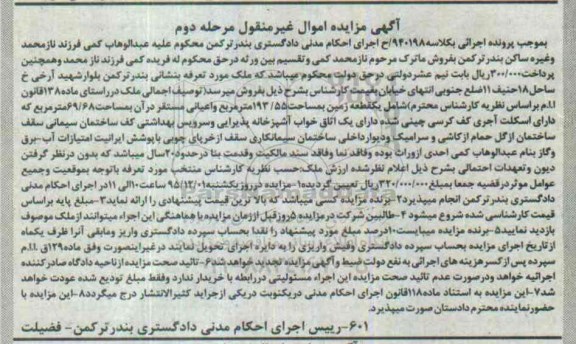 آگهی مزایده اموال غیرمنقول مرحله دوم
بموجب پرونده اجرائی بکلاسه ۹۴۰۱۹۸/ح اجرای احکام مدنی دادگستری بندرترکمن محکوم علیه عبدالوهاب کمی فرزند نازمحمد
وغیره ساکن بندرترکمن بفروش ماترک مرحوم نازمحمد کمی وتقسیم بین ورثه درحق محکوم له فریده کمی فرزند ناز محمد وهمچنین
پرداخت ۳۰۰/۰۰۰ریال بابت نیم عشردولتی درحق دولت محکوم میباشد که ملک مورد تعرفه بنشانی بندرترکمن بلوارشهید آرخی خ
ساحل۱۸حنیف۱۱ضلع جنوبی انتهای خیابان بقیمت کارشناس بشرح ذیل بفروش میرسد(توصیف اجمالی ملک درراستای ماده۱۳۸قانون
ا.م براساس نظریه کارشناس محترم)شامل یکقطعه زمین بمساحت۱۹۳/۵۵مترمربع واعیانی مستقر درآن بمساحت۶۹/۶۸مترمربع که
دارای اسکلت آجری کف کرسی چینی شده دارای یک اتاق خواب آشپزخانه پذیرایی وسرویس بهداشتی کف ساختمان سیمانی سقف
ساختمان ازگل حمام ازکاشی و سرامیک ودیوارداخلی ساختمان سیمانکاری سقف ازخرپای چوبی باپوشش ایرانیت امتیازات آب-برق
وگاز بنام عبدالوهاب کمی احدی ازوراث بوده وفاقد نما وفاقد سند مالکیت وقدمت بنا درحدود۲۰سال میباشد که بدون درنظر گرفتن
دیون وتعهدات احتمالی بشرح ذیل اعلام نظرشده ارزش ملک:حسب نظریه کارشناس منتخب مورد تعرفه باتوجه بموقعیت وجمیع
عوامل موثردرقضیه جمعا بمبلغ۳۲۰/۰۰۰/۰۰۰ریال تعیین گردیده۱-مزایده درروزیکشنبه۹۵/۱۲/۰۱ ساعت۱۰الی۱۱ دراجرای احکام مدنی
دادگستری بندرترکمن انجام میپذیرد۲-برنده مزایده کسی میباشد که بالا ترین قیمت پیشنهادی را ارائه نماید۳-مبلغ پایه براساس
قیمت کارشناسی شده شروع میشود ۴-طالبین شرکت درمزایده ۵روزقبل اززمان مزایده با هماهنگی این اجراء میتوانند ازملک موصوف
بازدید نمایند۵-برنده مزایده میبایست۱۰درصد مبلغ مورد پیشنهاد را نقدا بحساب سپرده دادگستری واریز ومابقی آنرا ظرف یکماه
ازتاریخ اجرای مزایده بحساب سپرده دادگستری وفیش واریزی را به دایره اجرای تحویل نمایند درغیراینصورت وفق ماده۱۲۹ق.ا.م
سپرده پس ازکسرهزینه های اجرائی به نفع دولت ضبط وآگهی مزایده تجدید خواهدشد۶-تائید صحت مزایده ازناحیه دادگاه صادرکننده
اجرائیه خواهد ودرصورت عدم تائید صحت مزایده این اجراء مسئولیتی دررابطه با خریدار ندارد وفقط مبلغ تودیع شده عودت خواهد
شد۷-این مزایده به استناد ماده۱۱۸قانون اجرای احکام مدنی دریکنوبت دریکی ازجراید کثیرالانتشار درج میگردد۸-این مزایده با
حضورنماینده محترم دادستان صورت میپذیرد.
۶۰۱-رییس اجرای احکام مدنی دادگستری بندرترکمن- فضیلت